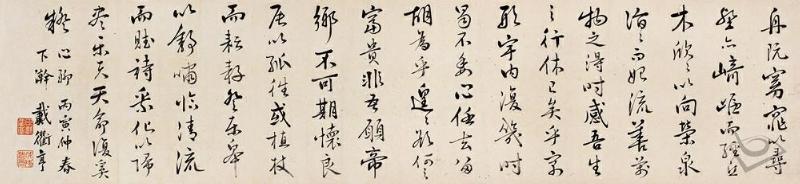 舟既窈窕以尋
壑亦崎嶇而經丘
木欣々以向榮泉
涓々而始流善萬
物之得時感吾生
之行休已矣乎寓
形宇內復幾時
曷不委心任去留
胡為乎遑々欲何之
富貴非吾願帝
鄉不可期懷良
辰以孤往或植杖
而耘耔登東皋
以舒嘯臨清流
而賦詩乘化以歸
盡樂夫天命復奚
疑 丙寅仲春
下澣 戴衢亨